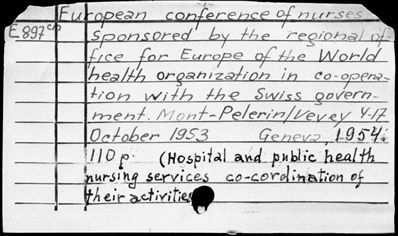 European conference of nurses
E897ch sponsored by the regional of-
fice for Europe of the World
health organization in co-opera-
tion with the Swiss govern-
ment. Mont-Pelerin/Vevey 4-17
October 1953 Geneva, 1954.
110 p. (Hospital and public health
nursing services co-cordination of
their activities